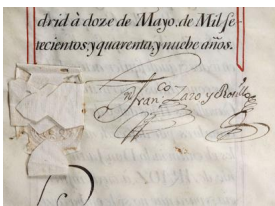 drid à doze de Mayo, de Mil se-
tecientos, y quarenta, y nuebe años.
Fran.co Zazo y Rosillo